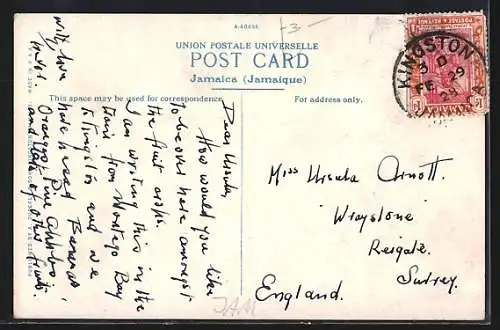 A-40455
-3-
UNION POSTALE UNIVERSELLE
POST CARD
Jamaica (Jamaique)
This space may be used for correspondence.
For address only.
POSTAGE & REVENUE
JAMAICA
KINGSTON
FE 29
28
JAMAICA
Dear Ursula,
How would you like
to be over here amongst
the fruit crops.
I am writing this in the
train from Montego Bay
to Kingston and we
have passed Bananas
Oranges, Pine Apples
and lots of other fruits.
With love
Miss Ursula Arnott.
"Wraystone"
Reigate.
Surrey.
England.
JAM